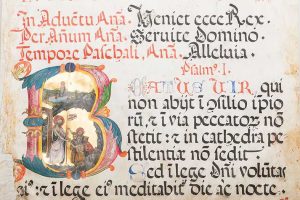 In Aduentu Anã. Veniet ecce Rex.
Per Anũm Anã. Seruite Dominõ
Tempore Paschali, Anã. Alleluia.
Psalm9. I.
BEATUS VIR, qui
non abijt ĩ cõsilio ĩpio
rũ, & ĩ via peccatorũ nõ
stetit: & in cathedra pe
stilentiæ nõ sedit.
Sed ĩ lege Dnĩ volũtas
ei9: & ĩ lege ei9 meditabit9 die ac nocte.